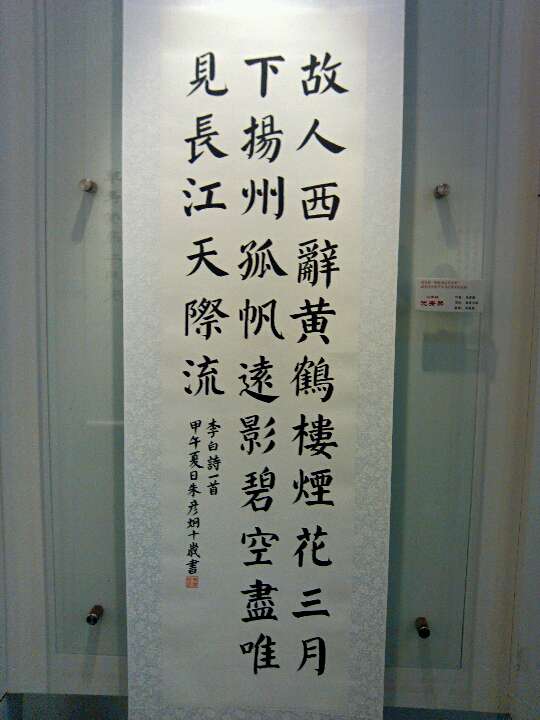 故人西辭黃鶴樓煙花三月
下揚州孤帆遠影碧空盡唯
見長江天際流
李白詩一首
甲午夏日朱彥炯十歲書